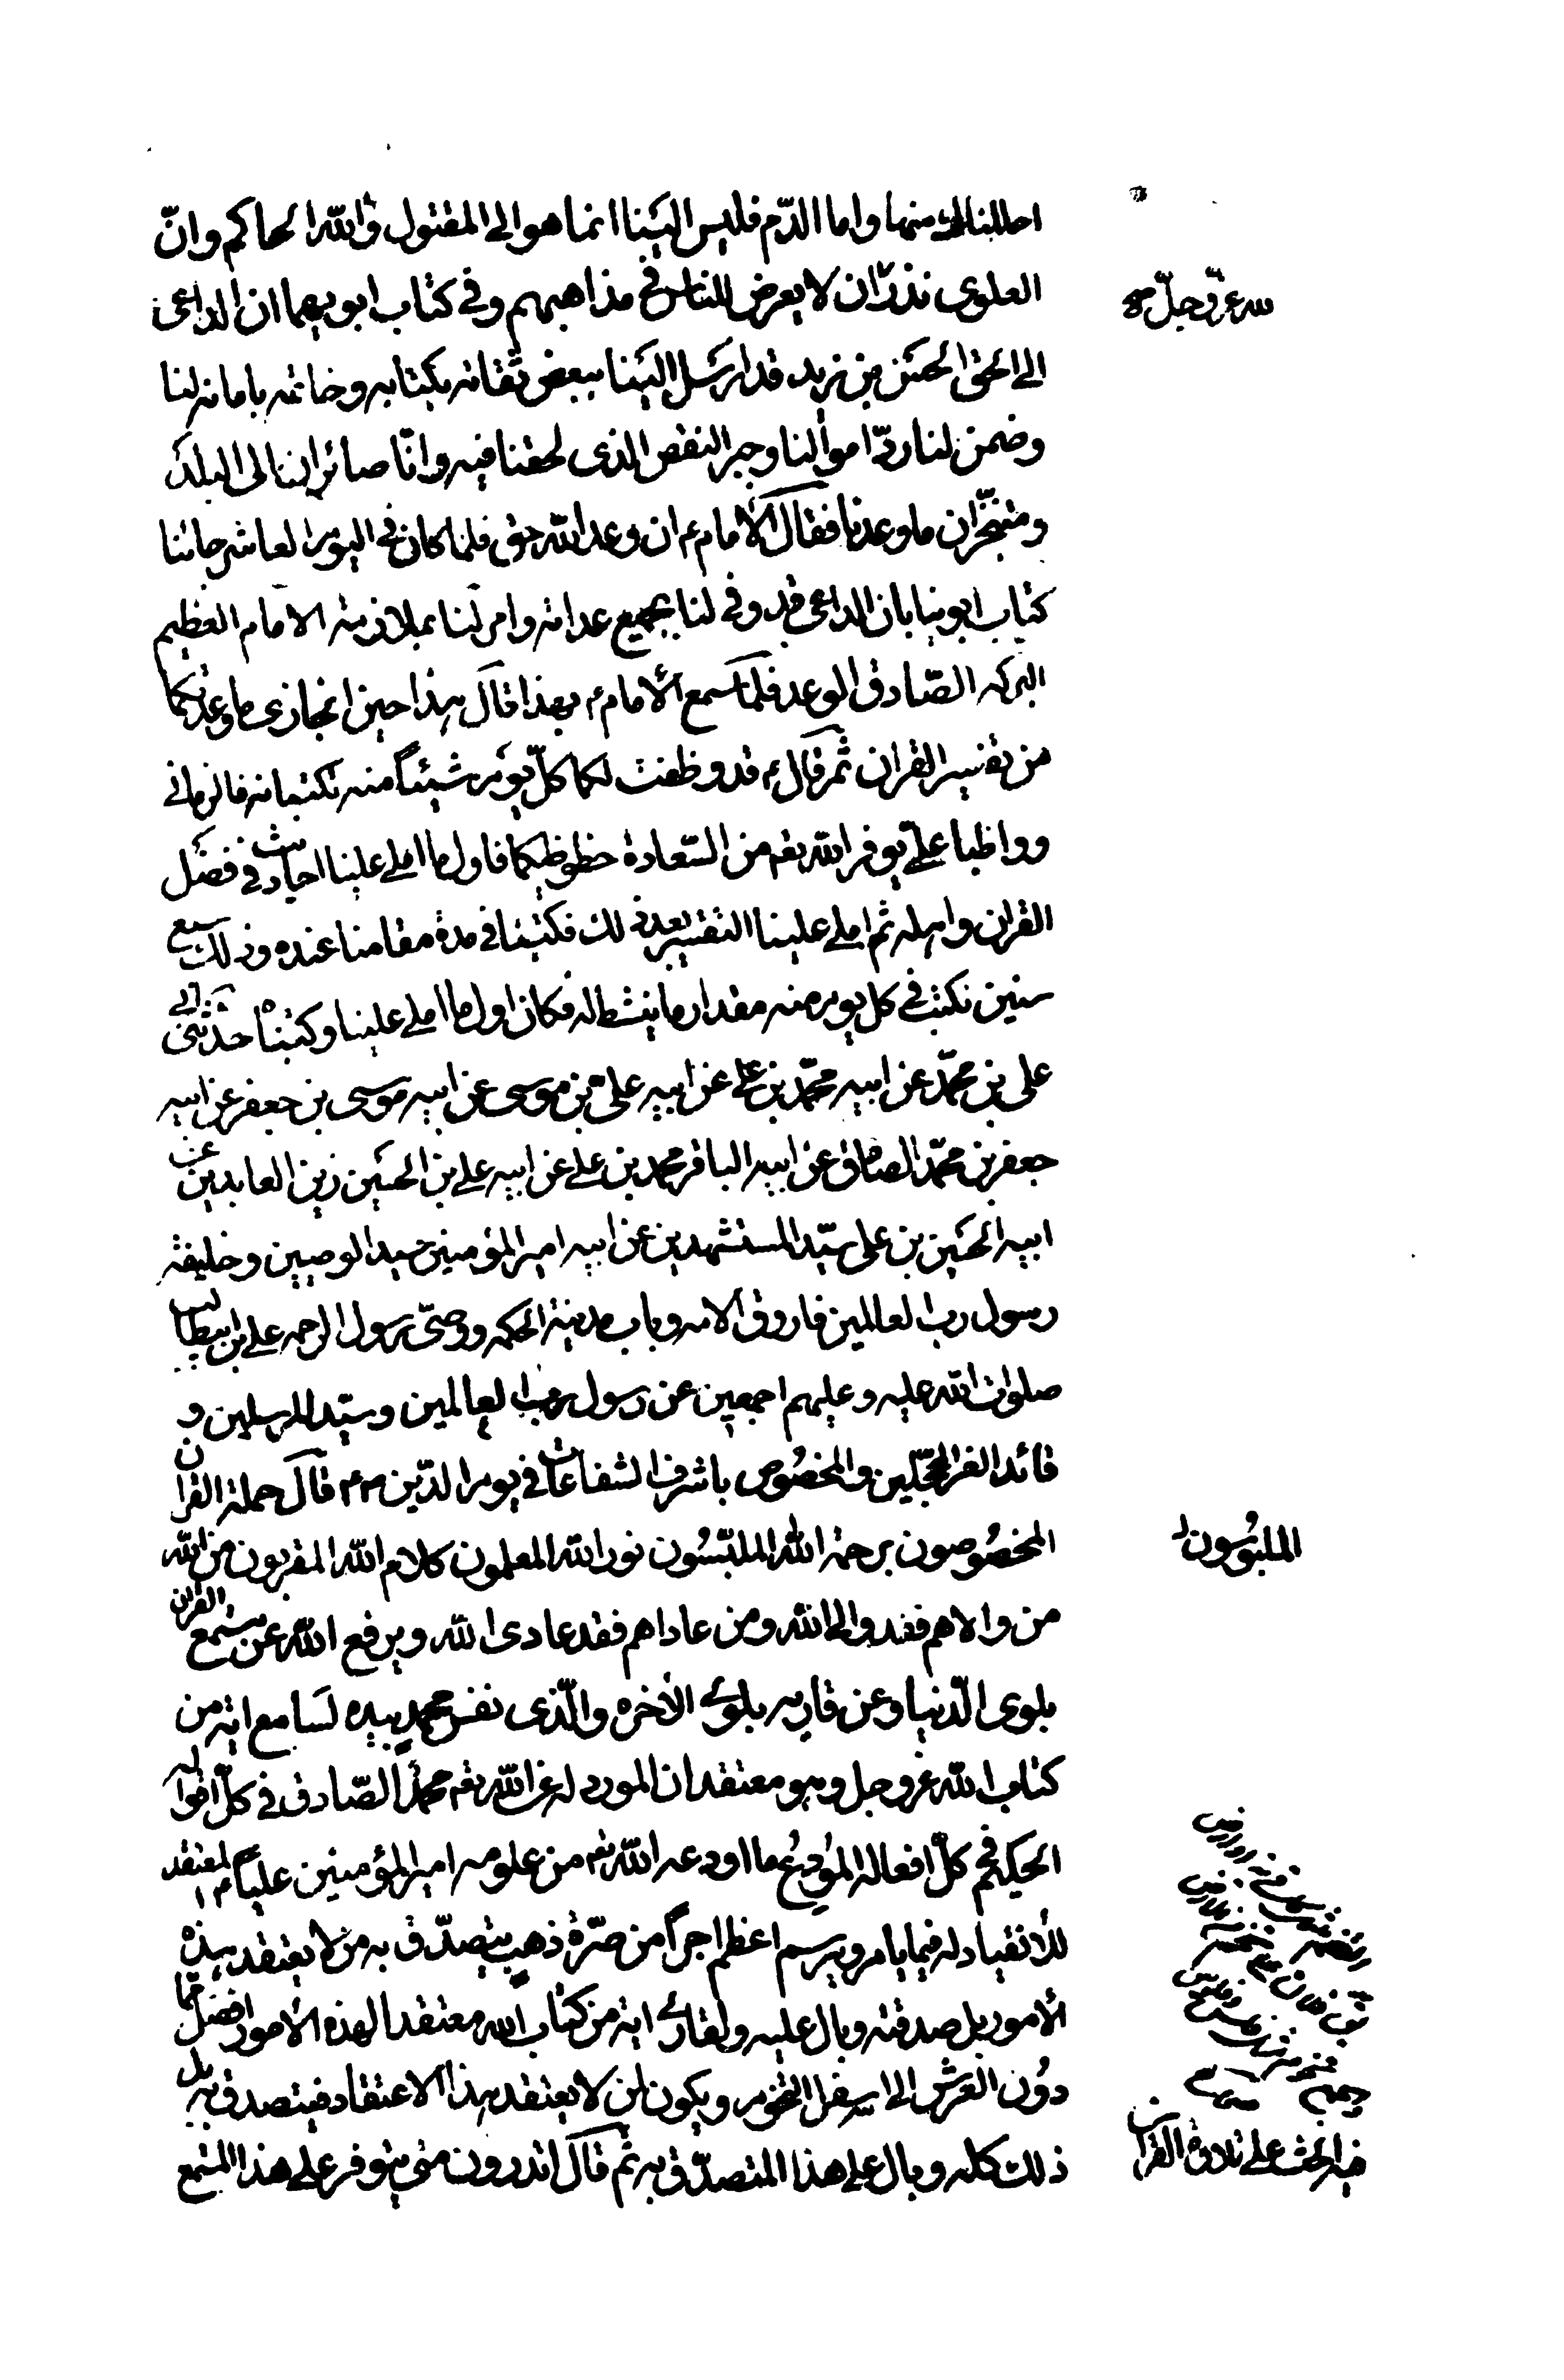 احللناك منها واما الدّم فليس الينا انما هو الى المقتول والله الحاكم وانّ
العلوى نذر ان لا يعرض للناس فى مذاهبهم وفى كتاب ابويهما ان الداعى
لله عزّ وجلّ صح
الى الحق الحسن بن زيد قد ارسل الينا ببعض ثقاته بكتابه وخاتمه بامانه لنا
وضمن لنا ردّ اموالنا وجبر النقص الذى لحقنا فيه وانّا صائران الى البلد
ومتنجّزان ما وعدنا فقال الامام ع ان وعد الله حق فلما كان فى اليوم العاشر جائنا
كتاب ابوينا بان الداعى قد وفى لنا بجميع عداته وامرلنا بملازمة الامام العظيم
البركه الصّادق الوعد فلمّا سمع الامام ع بهذا قال هذا حين انجازى ما وعدتكما
من تفسير القران ثم قال ع قد وظفت لكما كلّ يوم شيئاً منه تكتبانه فالزمانى
وواظبا على يوفر الله تع من السّعادة حظوظكما فاول ما املى علينا احاديث فى فضل
القران واهله ثم املى علينا التفسير بعد ذلك فكتبنا فى مدة مقامنا عنده وذلك سبع
سنين نكتب فى كل يوم منه مقدار ما ينشط له فكان اول ما املى علينا وكتبناه حدّثنى ابى
على بن محمّد عن ابيه محمّد بن على عن ابيه علىّ بن موسى عن ابيه موسى بن جعفر عن ابيه
جعفر بن محمّد الصادق عن ابيه الباقر محمد بن على عن ابيه على بن الحسين زين العابدين عن
ابيه الحسين بن على سيّد المستشهدين عن ابيه امير المؤمنين سيد الوصيين وخليفة
رسول رب العالمين فاروق الامه وباب مدينة الحكمه ووصىّ رسول الرحمه على بن ابيطالب
صلوات الله عليه وعليهم اجمعين عن رسول رب العالمين وسيّد المرسلين و
قائد الغر المحجّلين والمخصُوص باشرف الشفاعات فى يوم الدّين ص قال حملة القران
المخصُوصون برحمة الله الملبّسُون نور الله المعلمون كلام الله المقربون من الله
الملبوسُون
من والاهم فقد والى الله ومن عاداهم فقد عادى الله ويرفع الله عن مستمع القران
بلوى الدّنيا وعن قاريه بلوى الاخره والّذى نفس محمد بيده لسامع اية من
كتاب الله عز وجل وهو معتقد ان المورد له عن الله تع محمّد الصّادق فى كلّ اقواله
الحيكم فى كلّ افعاله المُودِعُ ما اودعه الله تع من علومه امير المؤمنين عليّاً ع المعتقد
للانقياد له فيما يامر ويرسم اعظم اجراً من صرّة ذهب يتصدّق به من لا يعتقد هذه
الامور بل صدقته وبال عليه ولقارئ اية من كتاب الله معتقدا لهذه الامور افضل ممّا
دوُن العرش الى اسفل التخوم ويكون لمن لا يعتقد هذا الاعتقاد فيتصدق به بل
ذلك كله وبال على هذا المتصدّق به ثم قال اتدرون متى يتوفر على هذا المستمع
فيه الحث على تلاوة القران